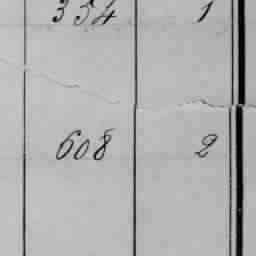 354 1
608 2